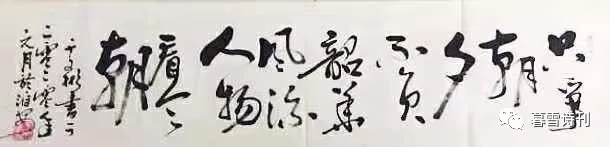 只争
朝
夕
不负
韶華
风流
人物
看今
朝
书于
二零二零年
元月於
暮雪诗刊